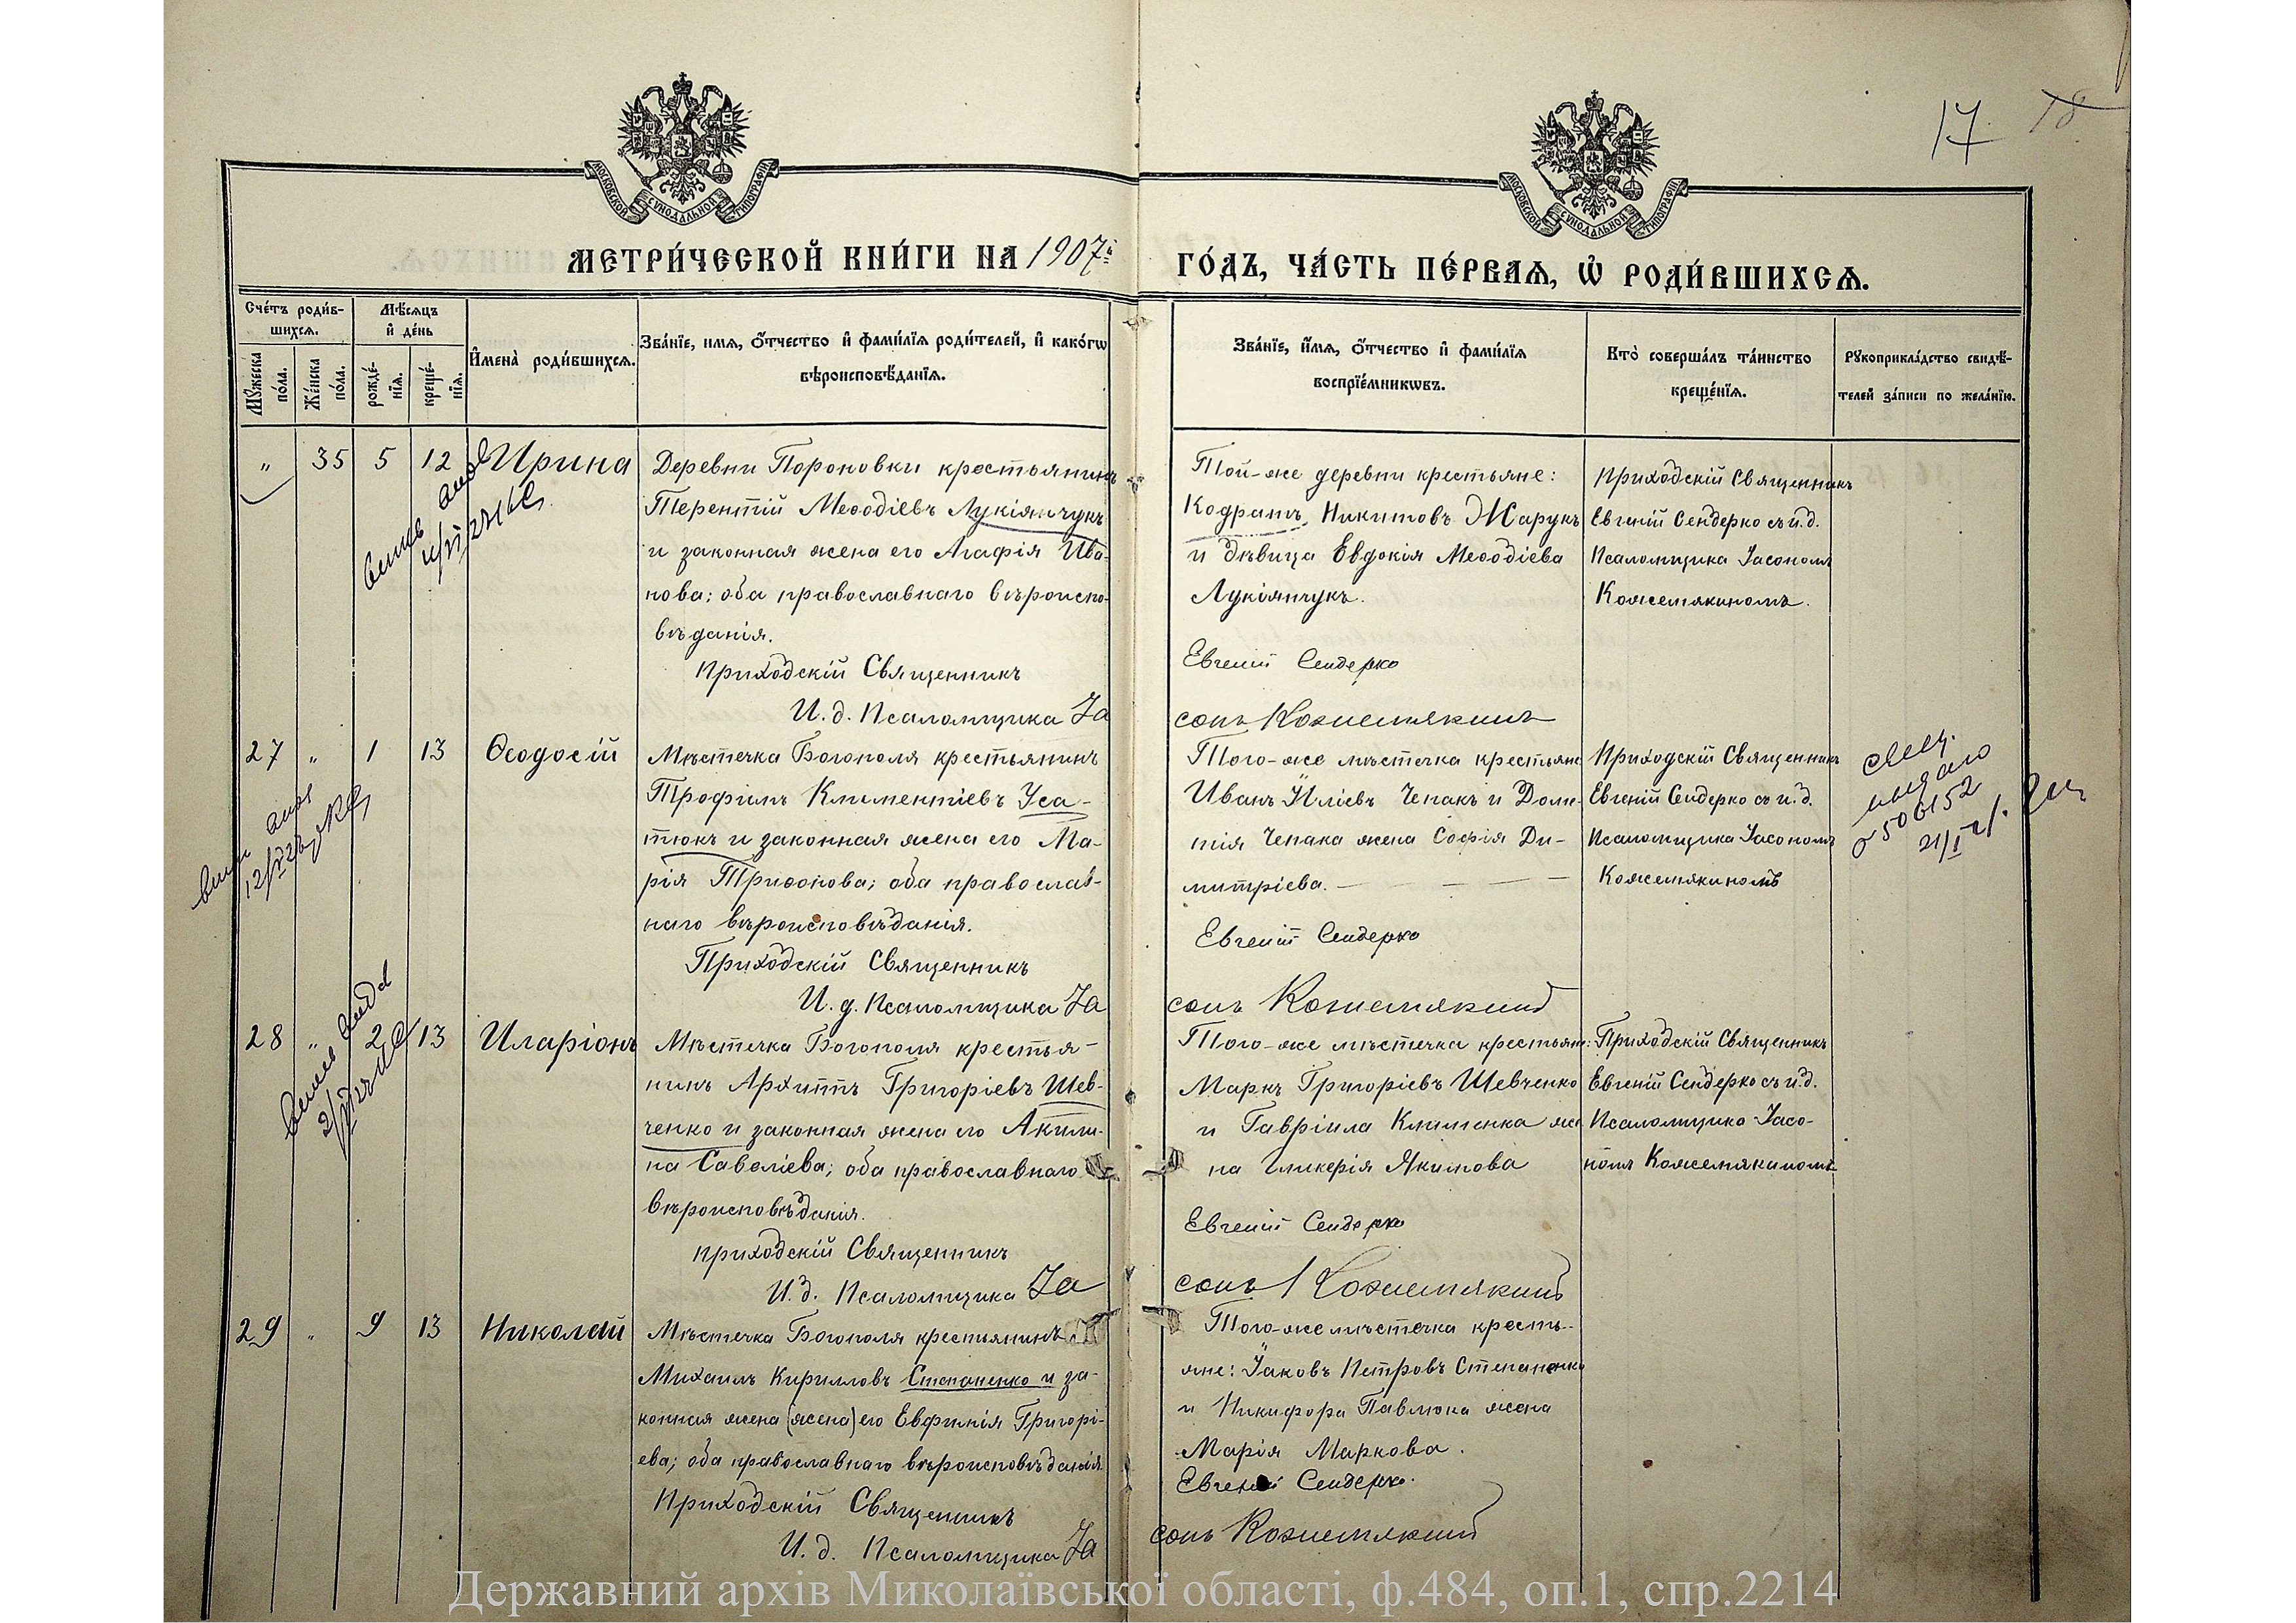 17 18
МОСКОВСКОЙ СѴНОДАЛЬНОЙ ТИПОГРАФІИ
МОСКОВСКОЙ СѴНОДАЛЬНОЙ ТИПОГРАФІИ
МЕТРИ́ЧЕСКОЙ КНИ́ГИ НА 1907й
ГО́ДЪ, ЧА́СТЬ ПЕ́РВАѦ, Ѡ҆ РОДИ́ВШИХСѦ.
Сче́тъ роди́в-
шихсѧ.
Мꙋ́жеска по́ла.
Же́нска по́ла.
Мѣ́сѧцъ
и҆ де́нь
рожде́-
нїѧ.
креще́-
нїѧ.
И҆мена̀ роди́вшихсѧ.
Зва́нїе, имѧ, ѻ҆́тчество и҆ фами́лїѧ роди́телей, и҆ како́гѡ
вѣроисповѣ́данїѧ.
Зва́нїе, и҆́мѧ, ѻ҆́тчество и҆ фами́лїѧ
воспрїе́мникѡвъ.
Кто̀ соверша́лъ та́инство
креще́нїѧ.
Рꙋкоприкла́дство свидѣ́-
телей за́писи по жела́нїю.
„ 35 5 12 Ирина
Деревни Пороновки крестьянинъ
Терентій Меѳодіевъ Лукіянчукъ
и законная жена его Агафія Ива-
нова; оба православнаго вѣроиспо-
вѣданія.
Приходскій Священникъ
И. д. Псаломщика Іа
Той-же деревни крестьяне:
Кодратъ Никитовъ Жарукъ
и дѣвица Евдокія Меѳодіева
Лукіянчукъ.
Евгеній Сендерко
сонъ Кожемякинъ
Приходскій Священникъ
Евгеній Сендерко съ и.д.
Псаломщика Іасономъ
Кожемякиномъ.
27 „ 1 13 Ѳеодосій
Мѣстечка Богополя крестьянинъ
Трофимъ Климентіевъ Уса-
тюкъ и законная жена его Ма-
рія Трифонова; оба православ-
наго вѣроисповѣданія.
Приходскій Священникъ
И. д. Псаломщика Іа
Того-же мѣстечка крестьяне
Иванъ Иліевъ Чепакъ и Доли-
нія Чепака жена Софія Ди-
митріева.
Евгеній Сендерко
сонъ Кожемякинъ
Приходскій Священникъ
Евгеній Сендерко съ и.д.
Псаломщика Іасономъ
Кожемякиномъ
506152
28 „ 2 13 Иларіонъ
Мѣстечка Богополя крестья-
нинъ Архиппъ Григоріевъ Шев-
ченко и законная жена его Акили-
на Савеліева; оба православнаго
вѣроисповѣданія.
Приходскій Священникъ
И. д. Псаломщика Іа
Того-же мѣстечка крестьяне:
Маркъ Григоріевъ Шевченко
и Гавріила Клименка же-
на Гликерія Якимова
Евгеній Сендерко
сонъ Кожемякинъ
Приходскій Священникъ
Евгеній Сендерко съ и.д.
Псаломщика Іасо-
номъ Кожемякиномъ
29 „ 9 13 Николай
Мѣстечка Богополя крестьянинъ
Михаилъ Кирилловъ Степаненко и за-
конная жена (жена) его Евфимія Григорі-
ева; оба православнаго вѣроисповѣданія
Приходскій Священникъ
И. д. Псаломщика Іа
Того-же мѣстечка кресть-
яне: Іаковъ Петровъ Степаненко
и Никифора Павлюка жена
Марія Маркова.
Евгеній Сендерко.
сонъ Кожемякинъ
Державний архів Миколаївської області, ф.484, оп.1, спр.2214